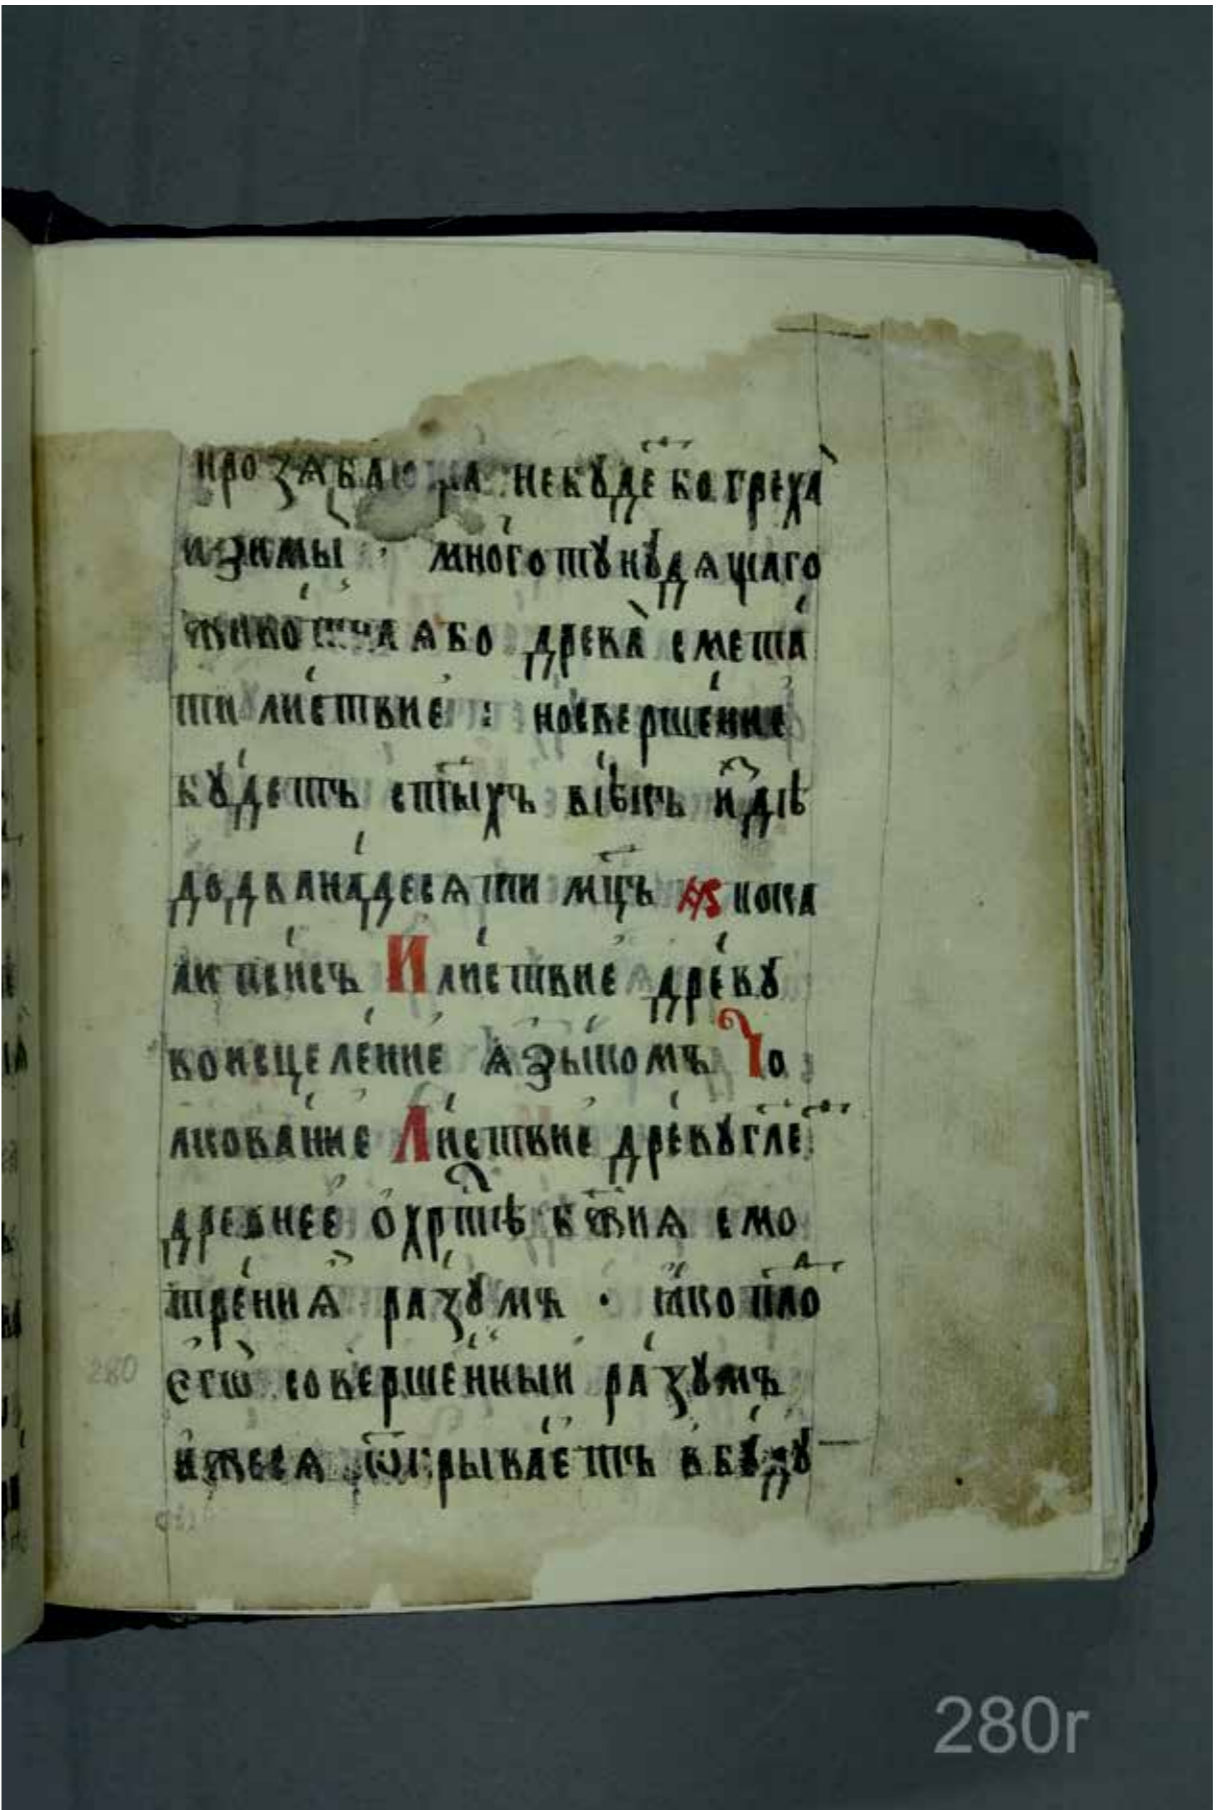 прозѧбающа не бꙋде бо греха
и зимы · многотꙋ нꙋдѧщаго
древа смета
ти листвие : но свершение
бꙋдеть ст҃ыхъ вѣкъ и҆дѣ
до дванадесѧти мц҃ъ апока
липсисъ И листвие древꙋ
во исцеление ѧзыкомъ То
лкование Листвие древꙋ гл҃е
древнее о хрт҃ѣ бж҃иѧ смо
трениѧ разꙋмъ · ꙗко пло
егѡ совершенныи разꙋмъ
иже сѧ ѿкрываетъ в бꙋдꙋ
280
280r